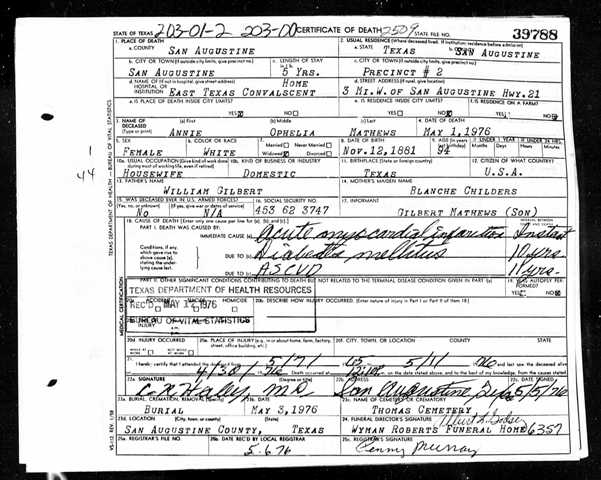 203-01-2 203-00 2509
STATE OF TEXAS CERTIFICATE OF DEATH STATE FILE NO. 39788
1. PLACE OF DEATH 2. USUAL RESIDENCE (Where deceased lived. If institution: residence before admission)
a. COUNTY SAN AUGUSTINE a. STATE TEXAS b. COUNTY SAN AUGUSTINE
b. CITY OR TOWN (If outside city limits, give precinct no.) c. LENGTH OF STAY c. CITY OR TOWN (If outside city limits, give precinct no.)
SAN AUGUSTINE 5 YRS. PRECINCT # 2
d. NAME OF (If not in hospital, give street address) HOSPITAL OR INSTITUTION EAST TEXAS CONVALSCENT HOME d. STREET ADDRESS (If rural, give location) 3 MI.W.OF SAN AUGUSTINE HWY.21
e. IS PLACE OF DEATH INSIDE CITY LIMITS? e. IS RESIDENCE INSIDE CITY LIMITS? f. IS RESIDENCE ON A FARM?
YES NO YES NO YES NO
3. NAME OF DECEASED (Type or print) (a) First (b) Middle (c) Last 4. DATE OF DEATH
ANNIE OPHELIA MATHEWS MAY 1,1976
5. SEX 6. COLOR OR RACE 7. Married Never Married 8. DATE OF BIRTH 9. AGE IF UNDER 1 YEAR IF UNDER 24 HRS.
FEMALE WHITE Widowed Divorced NOV.12,1881 94 Months Days Hours Minutes
10a. USUAL OCCUPATION (Give kind of work done during most of working life, even if retired) 10b. KIND OF BUSINESS OR INDUSTRY 11. BIRTHPLACE (State or foreign country) 12. CITIZEN OF WHAT COUNTRY?
HOUSEWIFE DOMESTIC TEXAS U.S.A.
13. FATHER'S NAME 14. MOTHER'S MAIDEN NAME
WILLIAM GILBERT BLANCHE CHILDERS
15. WAS DECEASED EVER IN U.S. ARMED FORCES? 16. SOCIAL SECURITY NO. 17. INFORMANT
NO N/A 453 62 3747 GILBERT MATHEWS (SON)
18. CAUSE OF DEATH (Enter only one cause per line for (a), (b), and (c).)
PART I. DEATH WAS CAUSED BY:
IMMEDIATE CAUSE (a) Acute myocardial infarction Instant
Conditions, if any, which gave rise to above cause (a), stating the underlying cause last. DUE TO (b) Diabetes mellitus 10 yrs.
DUE TO (c) ASCVD 11 yrs.
PART II. OTHER SIGNIFICANT CONDITIONS CONTRIBUTING TO DEATH BUT NOT RELATED TO THE TERMINAL DISEASE CONDITION GIVEN IN PART I(a) 19. WAS AUTOPSY PERFORMED?
TEXAS DEPARTMENT OF HEALTH RESOURCES YES NO
REC'D MAY 12 1976
HOMICIDE 20b. DESCRIBE HOW INJURY OCCURRED. (Enter nature of injury in Part I or Part II of item 18)
BUREAU OF VITAL STATISTICS
INJURY
20d. INJURY OCCURRED 20e. PLACE OF INJURY (e.g. in or about home, farm, factory, street, office building, etc.) 20f. CITY, TOWN, OR LOCATION COUNTY STATE
21. I hereby certify that I attended the deceased from 5/71 to 5/1/ 76 and last saw the deceased alive
4/30/76 Death occurred on the date stated above, and to the best of my knowledge, from the causes stated.
22a. SIGNATURE 22b. ADDRESS San Augustine, Texas 22c. DATE SIGNED 5/5/76
23a. BURIAL, CREMATION, REMOVAL (Specify) 23b. DATE 23c. NAME OF CEMETERY OR CREMATORY
BURIAL MAY 3,1976 THOMAS CEMETERY
23d. LOCATION (City, town, or county) (State) 24. FUNERAL DIRECTOR'S SIGNATURE
SAN AUGUSTINE COUNTY, TEXAS WYMAN ROBERTS FUNERAL HOME 6357
25a. REGISTRAR'S FILE NO. 25b. DATE REC'D BY LOCAL REGISTRAR 25c. REGISTRAR'S SIGNATURE
5.6.76 Penny Murray
1
44
TEXAS DEPARTMENT OF HEALTH — BUREAU OF VITAL STATISTICS
MEDICAL CERTIFICATION